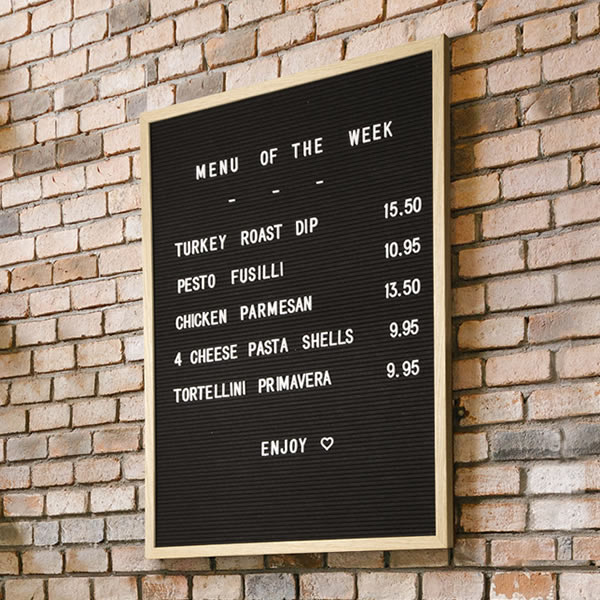 MENU OF THE WEEK
- - -
TURKEY ROAST DIP 15.50
PESTO FUSILLI 10.95
CHICKEN PARMESAN 13.50
4 CHEESE PASTA SHELLS 9.95
TORTELLINI PRIMAVERA 9.95
ENJOY ♡